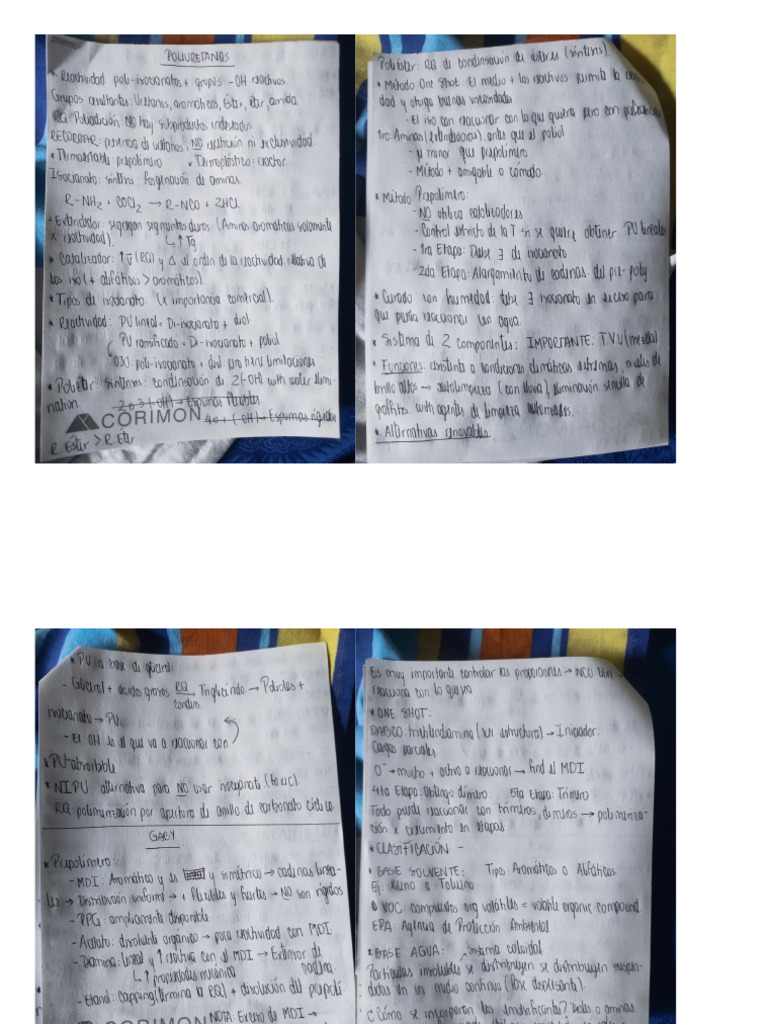 POLIURETANOS
* Reactividad poli-isocianatos + grupos -OH reactivos.
Grupos resultantes: Uretanos, aromáticos, Éster, éter, amida.
RQ Poliadición: NO hay subproductos indeseados
RECORDAR: presencia de uretanos, NO repetición ni exclusividad.
* Termoestable: prepolímero * Termoplástico: reactor
Isocianato: síntesis: fosgenación de aminas.
R-NH2 + COCl2 → R-NCO + 2HCl
* Extendedor: segregan segmentos duros (Aminas aromáticas solamente
x reactividad). ↳ ↑Tg
* Catalizador: ↑ v (RQ) y Δ el orden de la reactividad relativa de
los isol (+ alifáticos > aromáticos).
* Tipos de isocianato: (importancia comercial).
* Reactividad: PU lineal = Di-isocianato + diol
PU ramificado = Di-isocianato + poliol
poli-isocianato + diol pero tiene limitaciones
* Poliéter síntesis: condensación de 2(-OH) with water elimi-
nation
2 o 3 (-OH) → Espumas flexibles
CORIMON
4 o + (-OH) → Espumas rígidas
R Éster > R Éter
Poliéster: RQ de condensación de ésteres (síntesis)
* Método One Shot: El medio + los reactivos permita la
dad y otorga buenas viscosidades
- El iso can reaccionar con lo que quiera pero con preferencia
1ro Aminas (extendedoras) antes que el poliol
- menor que prepolímero
- Método + amigable o cómodo.
* Método Prepolímero:
- NO utiliza catalizadores
- Control estricto de la T si se quiere obtener PU lineales
- 1ra Etapa: Debe ∃ de isocianato
- 2da Etapa: Alargamiento de cadenas del pre-poly
* Curado con humedad: debe ∃ isocianato en exceso para
que pueda reaccionar con agua.
* Sistema de 2 componentes: IMPORTANTE: TVU (mezcla)
* Funciones: resistente a condiciones climáticas extremas, niveles de
brillo altos → autolimpieza (con lluvia), eliminación sencilla de
graffitis with agentes de limpieza automotrices.
* Alternativas renovables
* PU a base de glicerol
- Glicerol + ácidos grasos RQ → Triglicérido → Polioles +
condens.
isocianato → PU
- El OH es el que va a reaccionar con
* PU absorbible
* NIPU: alternativa para NO usar isocianato (tóxic).
RQ: polimerización por apertura de anillo de carbonato cíclico.
GABY
* Prepolímero:
- MDI: Aromático y es y simétrico → cadenas linea-
les → Distribución uniforme → + flexibles y fuertes → NO son rígidos
- PPG: ampliamente disponible
- Acetato: disolvente orgánico → para reactividad con MDI
- Diamina: lineal y ↑ reactiva con el MDI → Extensor de
↳ ↑ propiedades mecánica cadena
- Etanol: capping (termina la RQ) + disolución del prepolí-
CORIMON NOTA: Exceso de MDI →
Es muy importante controlar las proporciones → NCO libre →
reacciona con lo que va
* ONE SHOT:
DABCO: trietilendiamina (Un estructural) → Iniciador.
Cargas parciales
O⁻ → mucho + activo a reaccionar → find el MDI
4ta Etapa: Obtengo dímero 5ta Etapa: Trímero
Todo puede reaccionar con trímeros, dímeros → polimeriza-
ción x crecimiento en etapas
* CLASIFICACIÓN: -
* BASE SOLVENTE: Tipos Aromáticos o Alifáticos
Ej: Xileno o Tolueno
VOC compuestos org volátiles = volatile organic compound
EPA: Agencia de Protección Ambiental
* BASE AGUA: sistema coloidal
Partículas insolubles se distribuyen se distribuyen suspen-
didas en un medio continuo (fase dispersante).
¿Cómo se incorporan los emulsificantes? Dioles o aminas